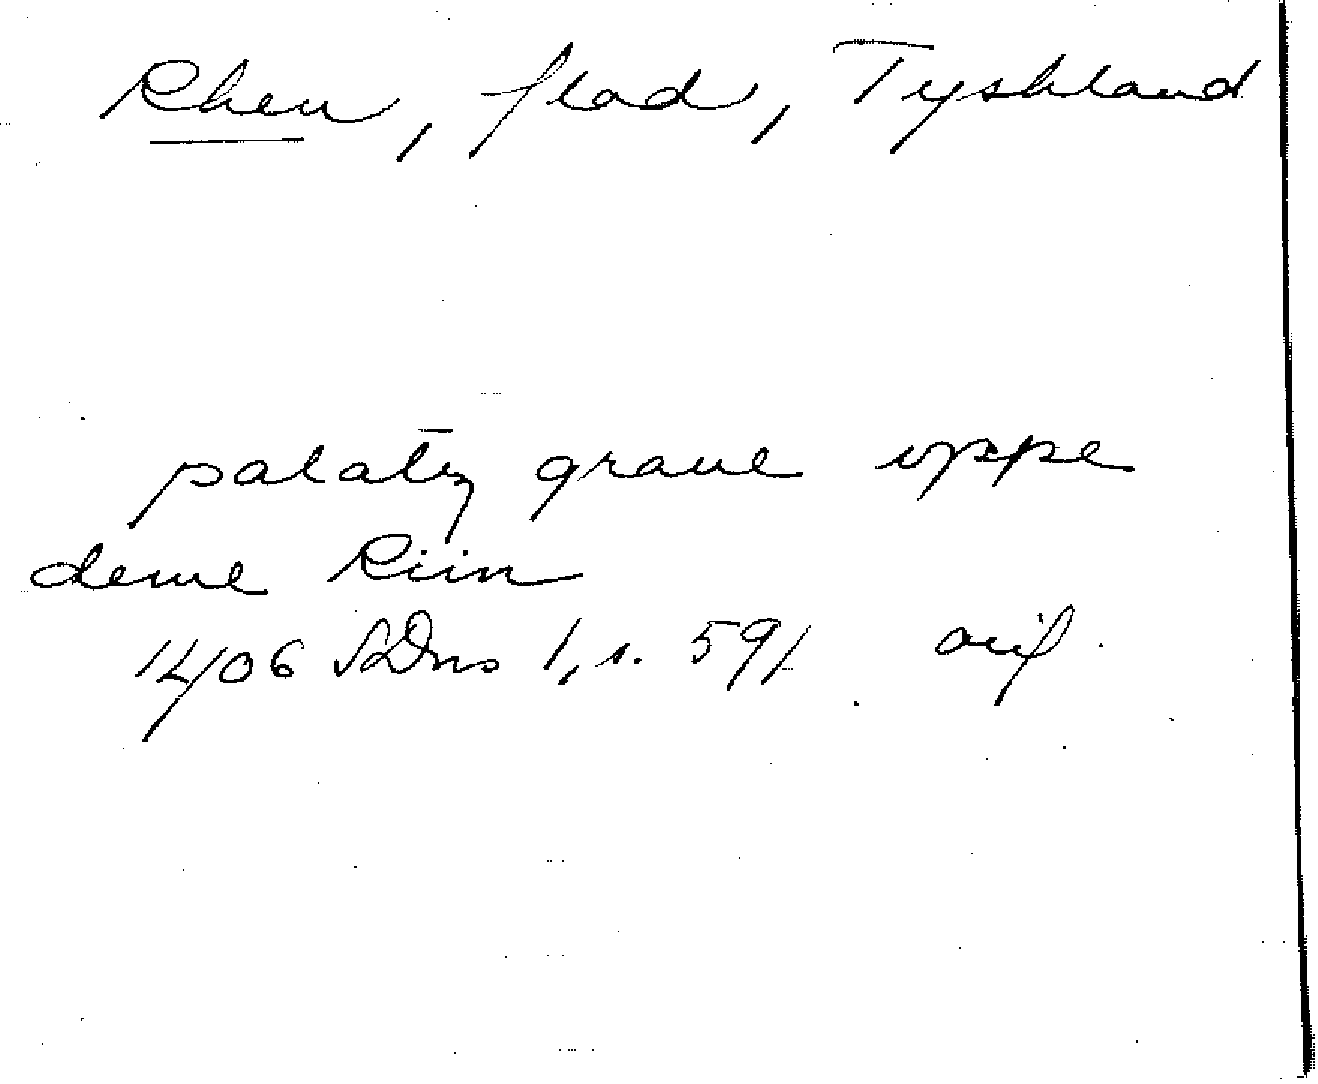 Rhen, flod, Tyskland
palatz̄ graue vppe
deme Riin
1406 SDns 1, s. 591 orig.